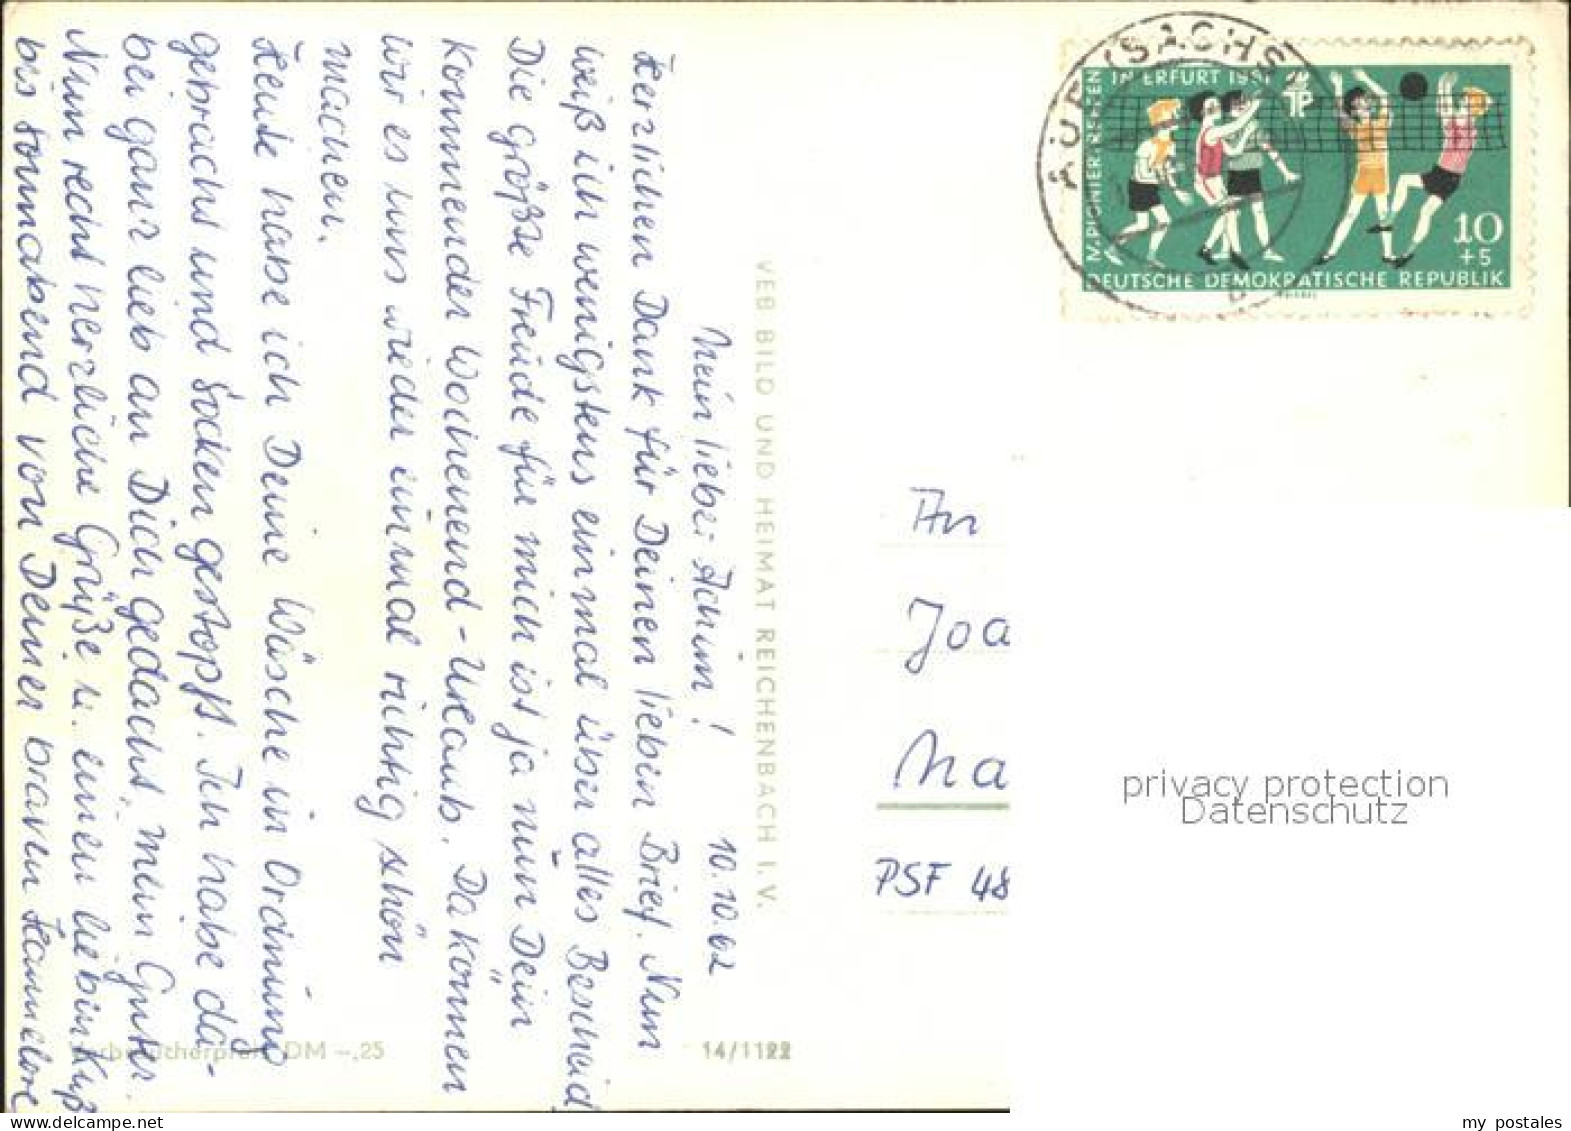 Mein lieber Achim! 10.10.62
Herzlichen Dank für Deinen lieben Brief. Nun
weiß ich wenigstens einmal über alles Bescheid
Die größte Freude für mich ist ja nun Dein
kommender Wochenend-Urlaub. Da können
wir es uns wieder einmal richtig schön
machen.
Heute habe ich Deine Wäsche in Ordnung
gebracht und Socken gestopft. Ich habe da-
bei ganz lieb an Dich gedacht, mein Guter.
Nun recht herzliche Grüße u. einen lieben Kuß
bis Sonnabend von Deiner braven Hannelore
VEB BILD UND HEIMAT REICHENBACH I. V.
DM -,25
14/1122
AUE (SACHS
IV. PIONIERTREFFEN IN ERFURT 1961
10
+5
DEUTSCHE DEMOKRATISCHE REPUBLIK
An
Joa
Na
PSF 48
privacy protection
Datenschutz
www.delcampe.net
my_postales